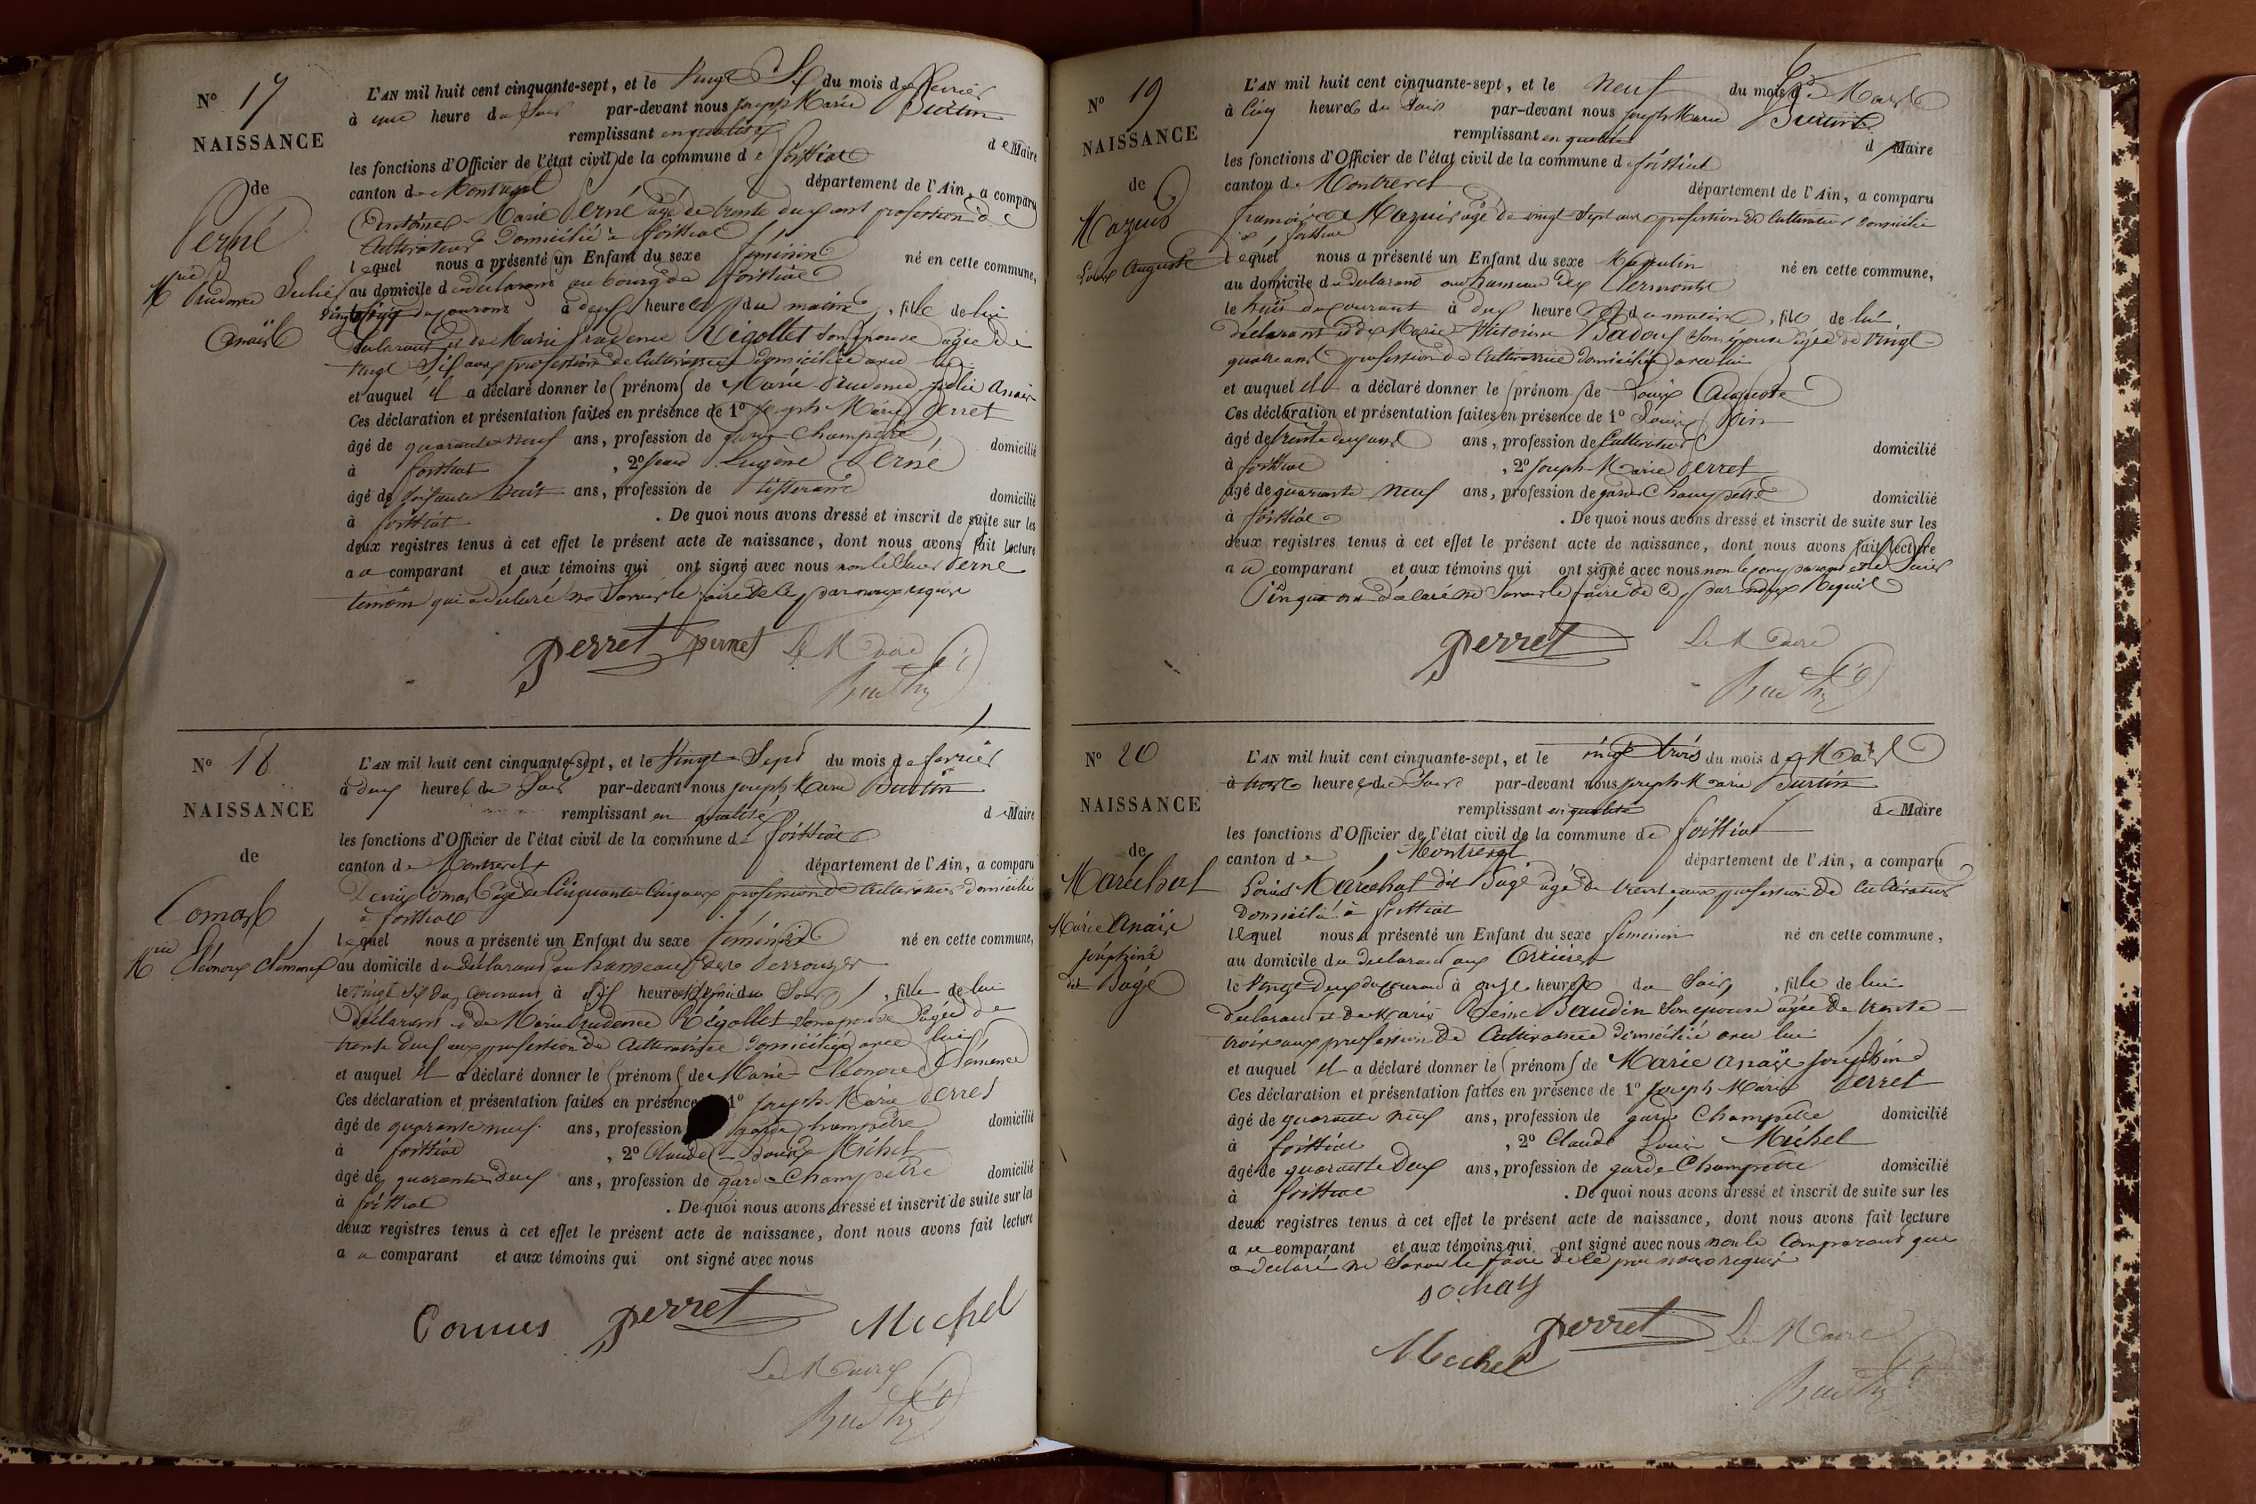 N° 17
NAISSANCE
de
Perné
Mie Prudence Julie
Anaïs
L'AN mil huit cent cinquante-sept, et le vingt Six du mois de février
à une heure du Soir par-devant nous Joseph Marie Burtin
remplissant en qualité de Maire
les fonctions d'Officier de l'état civil de la commune de foissiat
canton de Montrevel département de l'Ain, a comparu
Antoine Marie Perné âgé de trente deux ans profession de
Cultivateur Domicilié à foissiat
lequel nous a présenté un Enfant du sexe féminin né en cette commune,
au domicile du déclarant au bourg de foissiat
vingt six du courant à deux heures du matin, fille de lui
déclarant et de Marie Prudence Rigollet son épouse âgée de
vingt Six ans profession de Cultivatrice domiciliée avec lui
et auquel il a déclaré donner le prénom de Marie Prudence julie Anaïs
Ces déclaration et présentation faites en présence de 1° Joseph Marie Perret
âgé de quarante neuf ans, profession de garde Champêtre domicilié
à foissiat, 2° Eugène Perné
âgé de soixante huit ans, profession de tisserand domicilié
à foissiat. De quoi nous avons dressé et inscrit de suite sur les
deux registres tenus à cet effet le présent acte de naissance, dont nous avons fait lecture
au comparant et aux témoins qui ont signé avec nous non le Sieur Perné
témoin qui a déclaré ne Savoir le faire de ce par nous requis
perret pernet Le Maire
Burtin
N° 18
NAISSANCE
de
Comas
Mie Eléonore Clémence
L'AN mil huit cent cinquante-sept, et le vingt Sept du mois de février
à deux heures du Soir par-devant nous Joseph Marie Burtin
remplissant en qualité de Maire
les fonctions d'Officier de l'état civil de la commune de foissiat
canton de Montrevel département de l'Ain, a comparu
Denis Comas âgé de Cinquante Cinq ans profession de Cultivateur domicilié
à foissiat
lequel nous a présenté un Enfant du sexe féminin né en cette commune,
au domicile du déclarant au hameau des Perrouzes
le vingt Six du courant à dix heures du Soir, fille de lui
déclarant et de Marie Prudence Rigollet son épouse âgée de
trente deux ans profession de Cultivatrice domiciliée avec lui
et auquel il a déclaré donner le prénom de Marie Eléonore Clémence
Ces déclaration et présentation faites en présence 1° Joseph Marie Perret
âgé de quarante neuf ans, profession garde champêtre domicilié
à foissiat, 2° Claude Louis Michel
âgé de quarante deux ans, profession de garde Champêtre domicilié
à foissiat. De quoi nous avons dressé et inscrit de suite sur les
deux registres tenus à cet effet le présent acte de naissance, dont nous avons fait lecture
au comparant et aux témoins qui ont signé avec nous
Comas perret Michel
Le Maire
Burtin
N° 19
NAISSANCE
de
Mazuis
Louis Auguste
L'AN mil huit cent cinquante-sept, et le neuf du mois de Mars
à Cinq heures du Soir par-devant nous Joseph Marie Burtin
remplissant en qualité de Maire
les fonctions d'Officier de l'état civil de la commune de foissiat
canton de Montrevel département de l'Ain, a comparu
françois Mazuis âgé de vingt Sept ans profession de Cultivateur domicilié
à foissiat
lequel nous a présenté un Enfant du sexe Masculin né en cette commune,
au domicile du déclarant au hameau des Clermonts
le huit du courant à dix heures du matin, fils de lui
déclarant et de Marie Victorine Badoux Son épouse âgée de vingt
quatre ans profession de Cultivatrice domiciliée avec lui
et auquel il a déclaré donner le prénom de Louis Auguste
Ces déclaration et présentation faites en présence de 1° Louis Pin
âgé de trente deux ans ans, profession de Cultivateur domicilié
à foissiat, 2° Joseph Marie Perret
âgé de quarante neuf ans, profession de garde Champêtre domicilié
à foissiat. De quoi nous avons dressé et inscrit de suite sur les
deux registres tenus à cet effet le présent acte de naissance, dont nous avons fait lecture
au comparant et aux témoins qui ont signé avec nous non le comparant et le Sieur
Pin qui ont déclaré ne Savoir le faire de ce par nous Requis
perret Le Maire
Burtin
N° 20
NAISSANCE
de
Maréchal
Marie Anaïs
joséphine
dit Bagé
L'AN mil huit cent cinquante-sept, et le vingt trois du mois de Mars
à trois heures du Soir par-devant nous Joseph Marie Burtin
remplissant en qualité de Maire
les fonctions d'Officier de l'état civil de la commune de foissiat
canton de Montrevel département de l'Ain, a comparu
Louis Maréchal dit Bagé âgé de trente ans profession de Cultivateur
Domicilié à foissiat
lequel nous a présenté un Enfant du sexe féminin né en cette commune,
au domicile du déclarant aux
le vingt deux du courant à onze heures du Soir, fille de lui
déclarant et de Marie Reine Baudin Son épouse âgée de trente
trois ans profession de Cultivatrice domiciliée avec lui
et auquel il a déclaré donner le prénom de Marie Anaïs Joséphine
Ces déclaration et présentation faites en présence de 1° Joseph Marie Perret
âgé de quarante neuf ans, profession de garde Champêtre domicilié
à foissiat, 2° Claude Louis Michel
âgé de quarante deux ans, profession de garde Champêtre domicilié
à foissiat. De quoi nous avons dressé et inscrit de suite sur les
deux registres tenus à cet effet le présent acte de naissance, dont nous avons fait lecture
au comparant et aux témoins qui ont signé avec nous non le Comparant qui
a déclaré ne Savoir le faire de ce par nous requis
perret Le Maire
Michel
Burtin